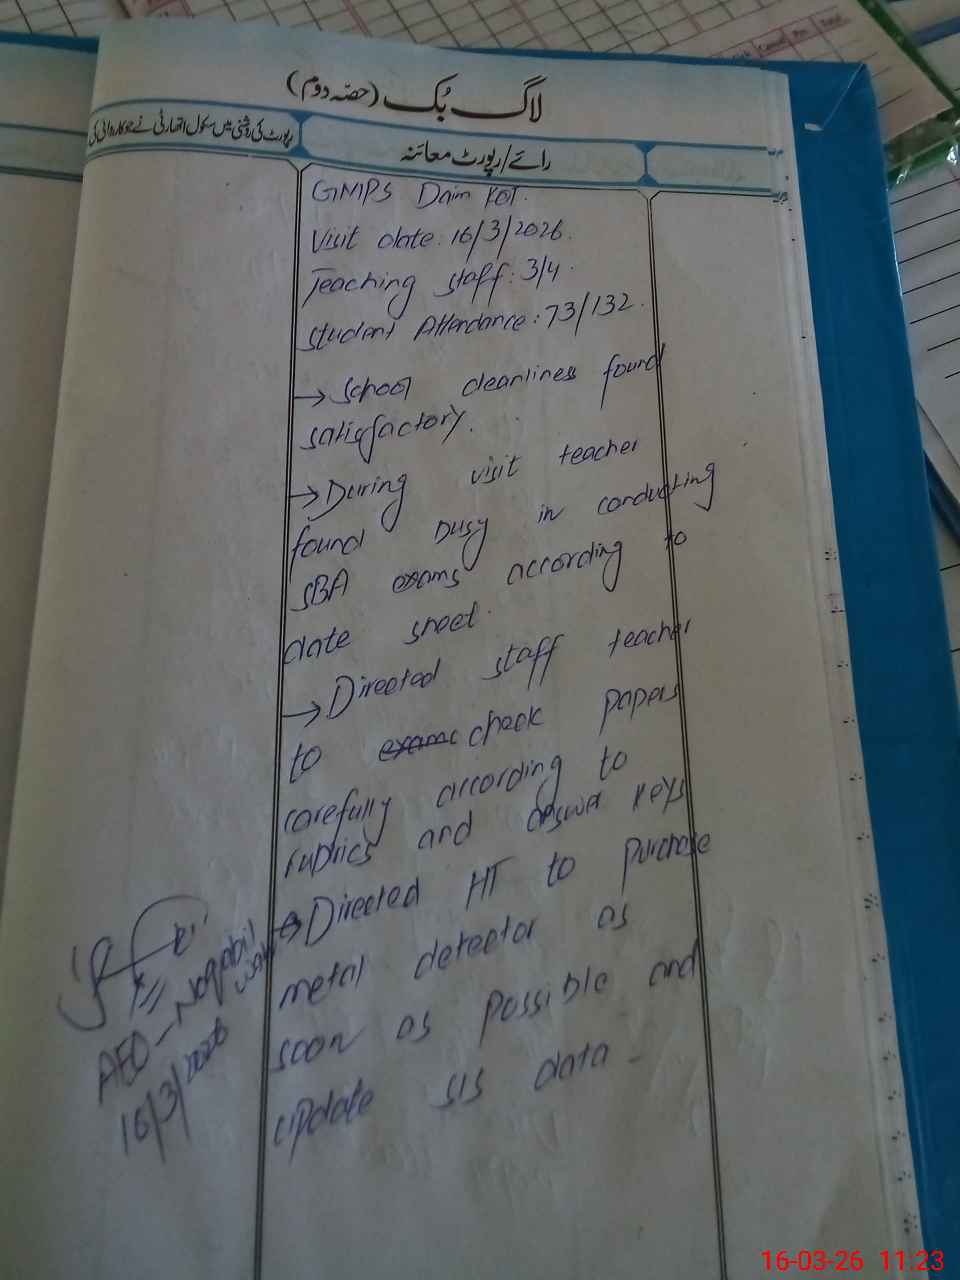 لاگ بُک (حصّہ دوم)
رائے/رپورٹ معائنہ
رپورٹ کی روشنی میں سکول اتھارٹی نے جو کاروائی کی
GMPS Daim Kot.
Visit date: 16/3/2026.
Teaching staff: 3/4.
Student Attendance: 73/132.
→ School cleanliness found
satisfactory.
→ During visit teacher
found busy in conducting
SBA exams according to
date sheet.
→ Directed staff teacher
to check papers
carefully according to
rubrics and answer keys
→ Directed HT to purchase
metal detector as
soon as possible and
update SIS data -
AEO -
16/3/2026
16-03-26 11:23